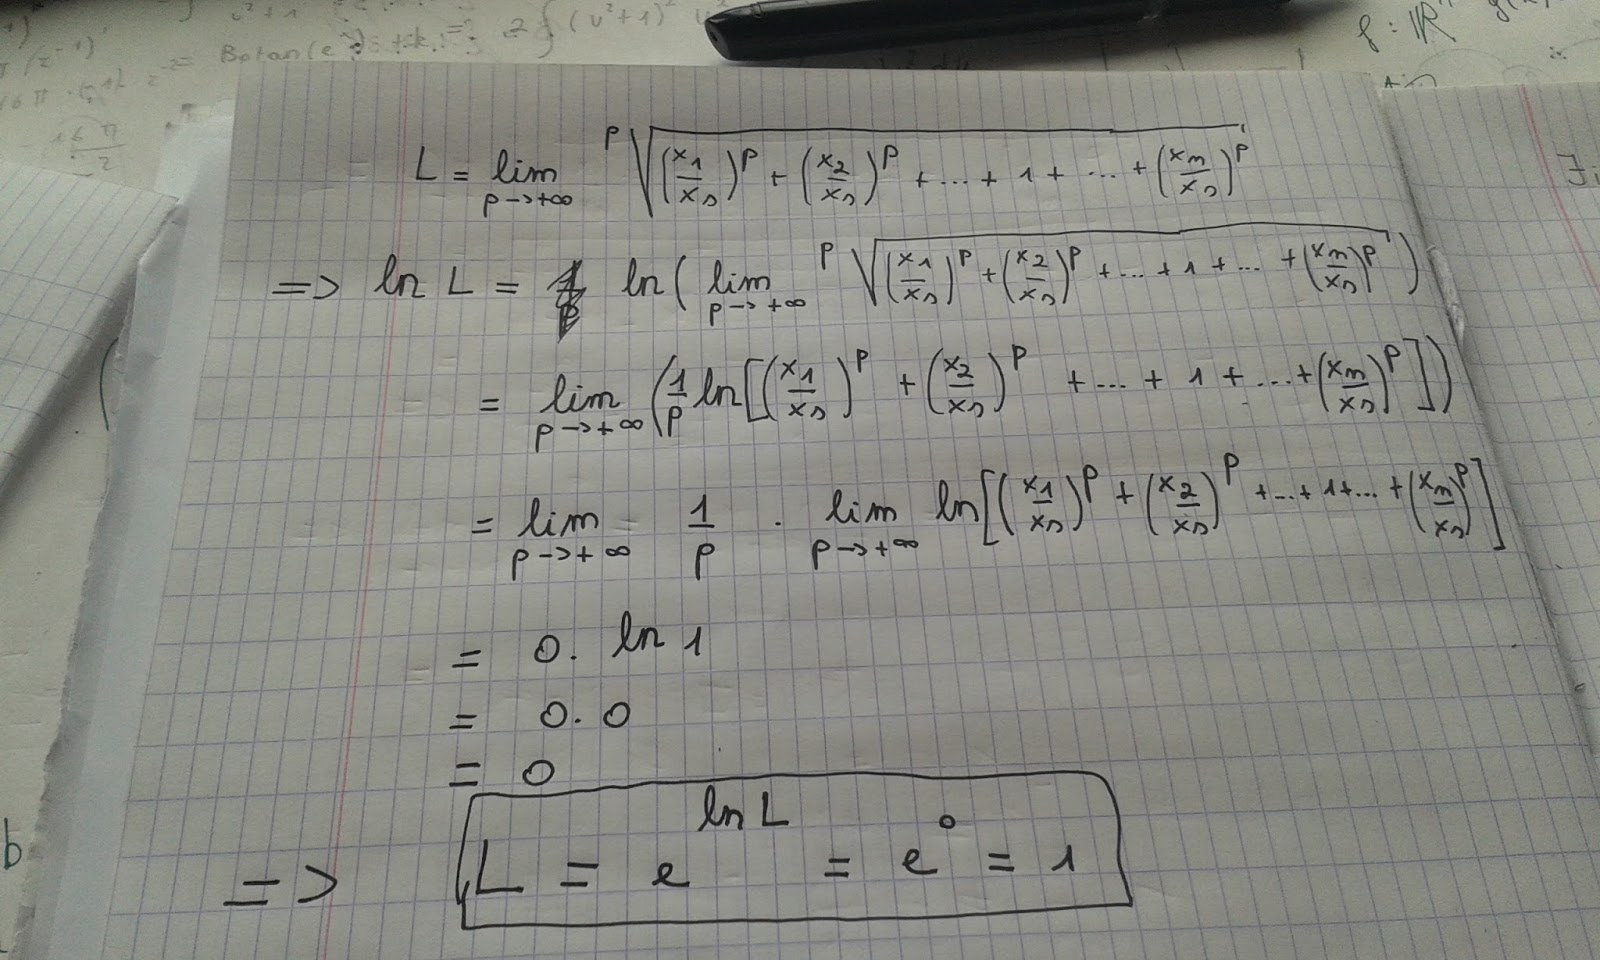 L = lim p→+∞ ᵖ√((x₁/xₛ)ᵖ + (x₂/xₛ)ᵖ + ... + 1 + ... + (xₙ/xₛ)ᵖ)
=> ln L = ln( lim p→+∞ ᵖ√((x₁/xₛ)ᵖ + (x₂/xₛ)ᵖ + ... + 1 + ... + (xₙ/xₛ)ᵖ) )
= lim p→+∞ (1/p ln[(x₁/xₛ)ᵖ + (x₂/xₛ)ᵖ + ... + 1 + ... + (xₙ/xₛ)ᵖ])
= lim p→+∞ 1/p · lim p→+∞ ln[(x₁/xₛ)ᵖ + (x₂/xₛ)ᵖ + ... + 1 + ... + (xₙ/xₛ)ᵖ]
= 0. ln 1
= 0. 0
= 0
=> L = e^(ln L) = e⁰ = 1
b